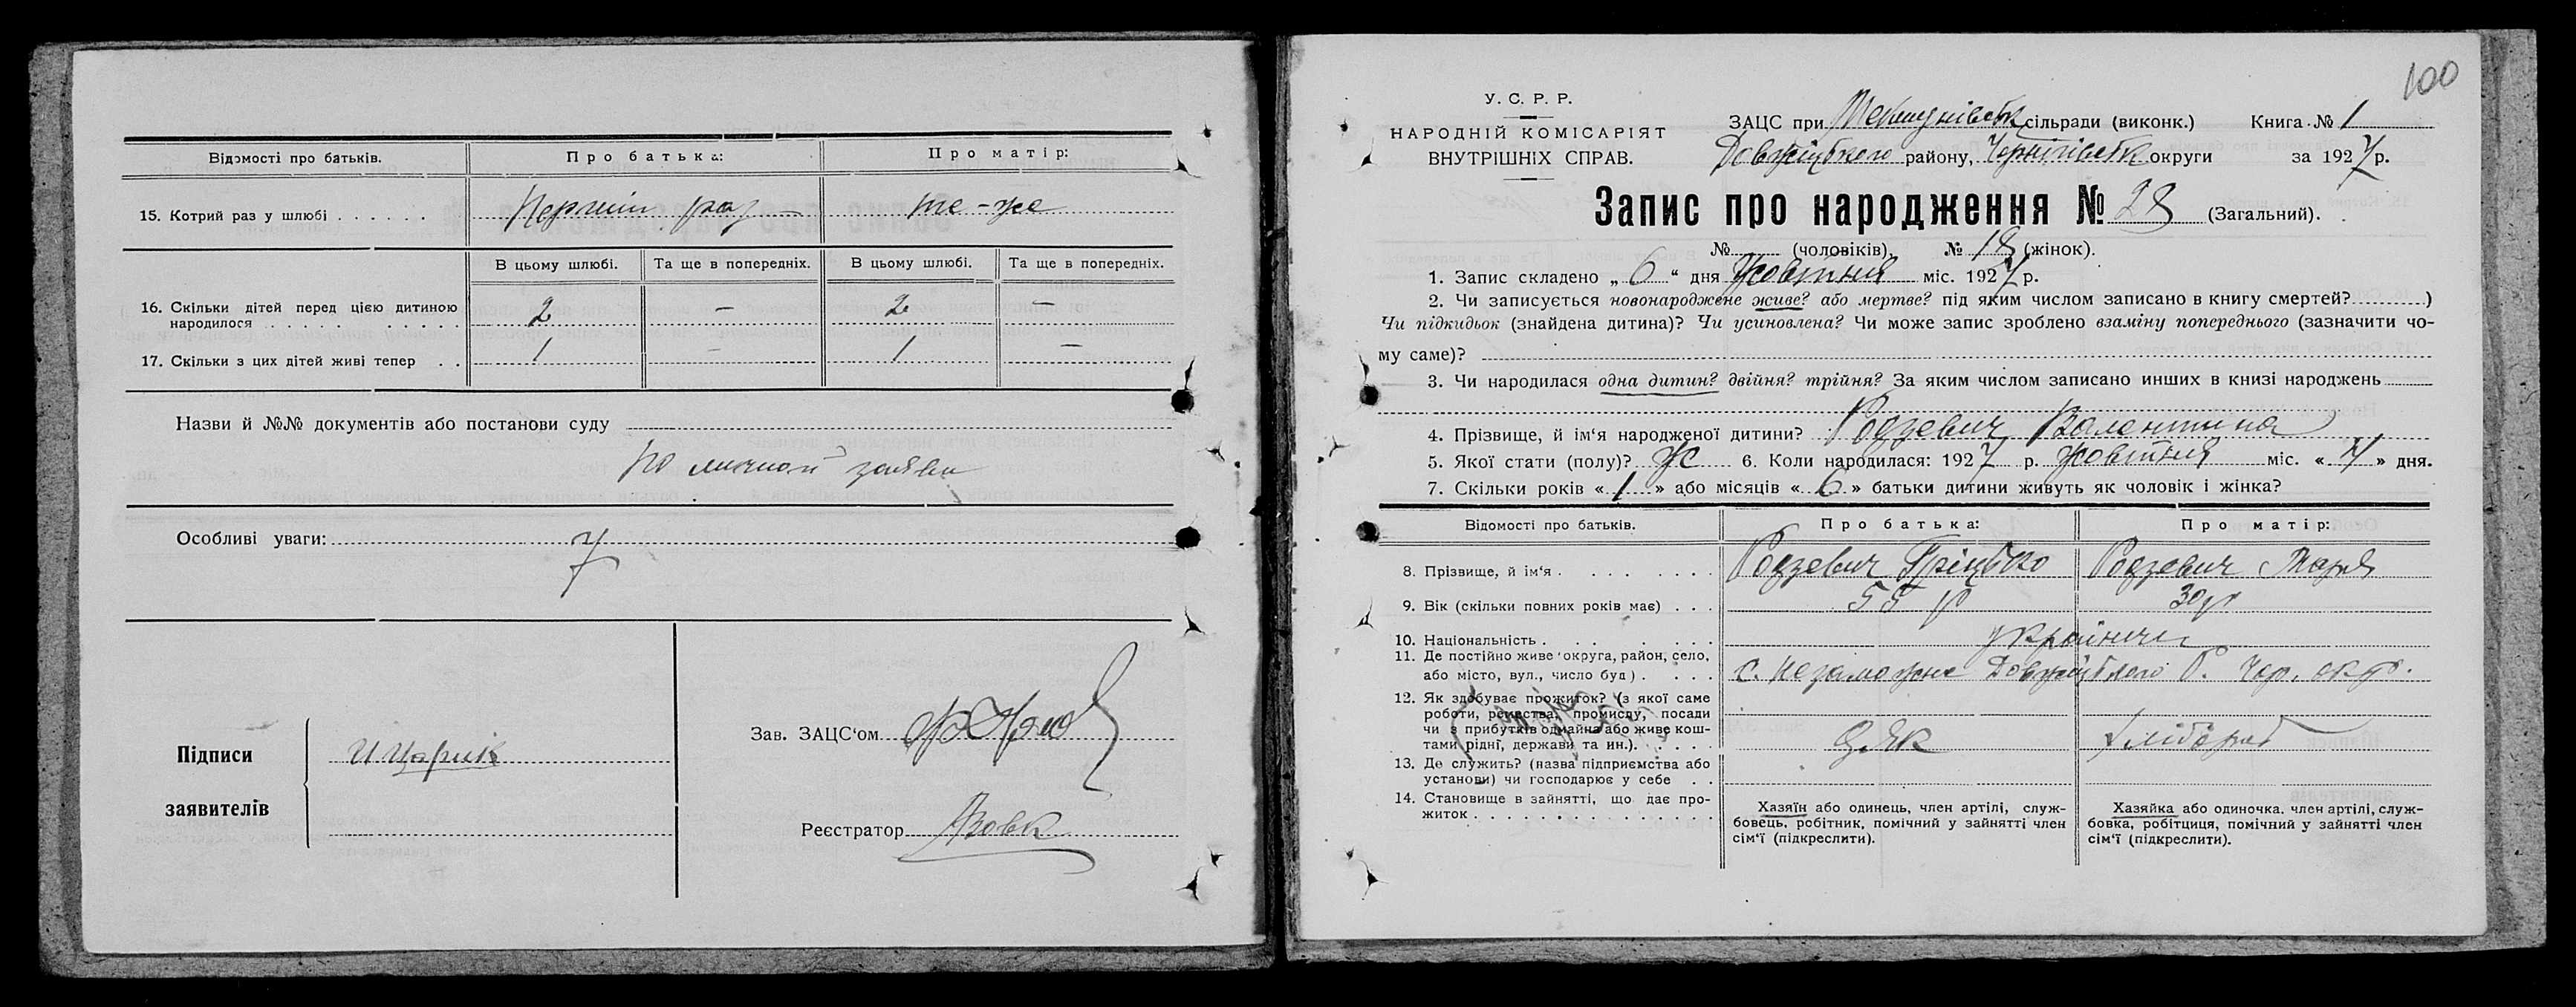 Відомості про батьків. Про батька: Про матір:
15. Котрий раз у шлюбі . . . . . . Перший раз те-же
В цьому шлюбі. Та ще в попередніх. В цьому шлюбі. Та ще в попередніх.
16. Скільки дітей перед цією дитиною
народилося . . . . . . . . . . 2 — 2 —
17. Скільки з цих дітей живі тепер . . 1 — 1 —
Назви й №№ документів або постанови суду
по личной заяви
Особливі уваги:
7
Підписи
заявителів
И Царик
Зав. ЗАЦС'ом
Реєстратор
100
У. С. Р. Р.
НАРОДНІЙ КОМІСАРІЯТ
ВНУТРІШНІХ СПРАВ.
ЗАЦС при сільради (виконк.) Книга № 1
району, Чернігівськ округи за 1927 р.
Запис про народження № 28 (Загальний).
№ (чоловіків), № 18 (жінок).
1. Запис складено „ 6 “ дня Жовтня міс. 1927 р.
2. Чи записується новонароджене живе? або мертве? під яким числом записано в книгу смертей? )
Чи підкидьок (знайдена дитина)? Чи усиновлена? Чи може запис зроблено взаміну попереднього (зазначити чо-
му саме)?
3. Чи народилася одна дитин? двійня? трійня? За яким числом записано инших в книзі народжень
4. Прізвище, й ім'я народженої дитини? Родзевич Валентина
5. Якої стати (полу)? Ж 6. Коли народилася: 1927 р. Жовтня міс. « » дня.
7. Скільки років « 1 » або місяців « 6 » батьки дитини живуть як чоловік і жінка?
Відомості про батьків. Про батька: Про матір:
8. Прізвище, й ім'я . . . . . . Родзевич Гріцько Родзевич Марія
9. Вік (скільки повних років має) . . . 55 р 30 р
10. Національність . . . . . . .
11. Де постійно живе округа, район, село,
або місто, вул., число буд) . . . . с. Незаможне Р. Чер. окр.
12. Як здобуває прожиток? (з якої саме
роботи, ремества, промислу, посади
чи з прибутків одмайна або живе кош-
тами рідні, держави та ин.). . . . . Дяк хлібороб
13. Де служить? (назва підприємства або
установи) чи господарює у себе . .
14. Становище в зайнятті, що дає про-
житок . . . . . . . . . . . . . .
Хазяїн або одинець, член артілі, служ-
бовець, робітник, помічний у зайнятті член
сім'ї (підкреслити).
Хазяйка або одиночка, член артілі, служ-
бовка, робітциця, помічний у зайнятті член
сім'ї (підкреслити).